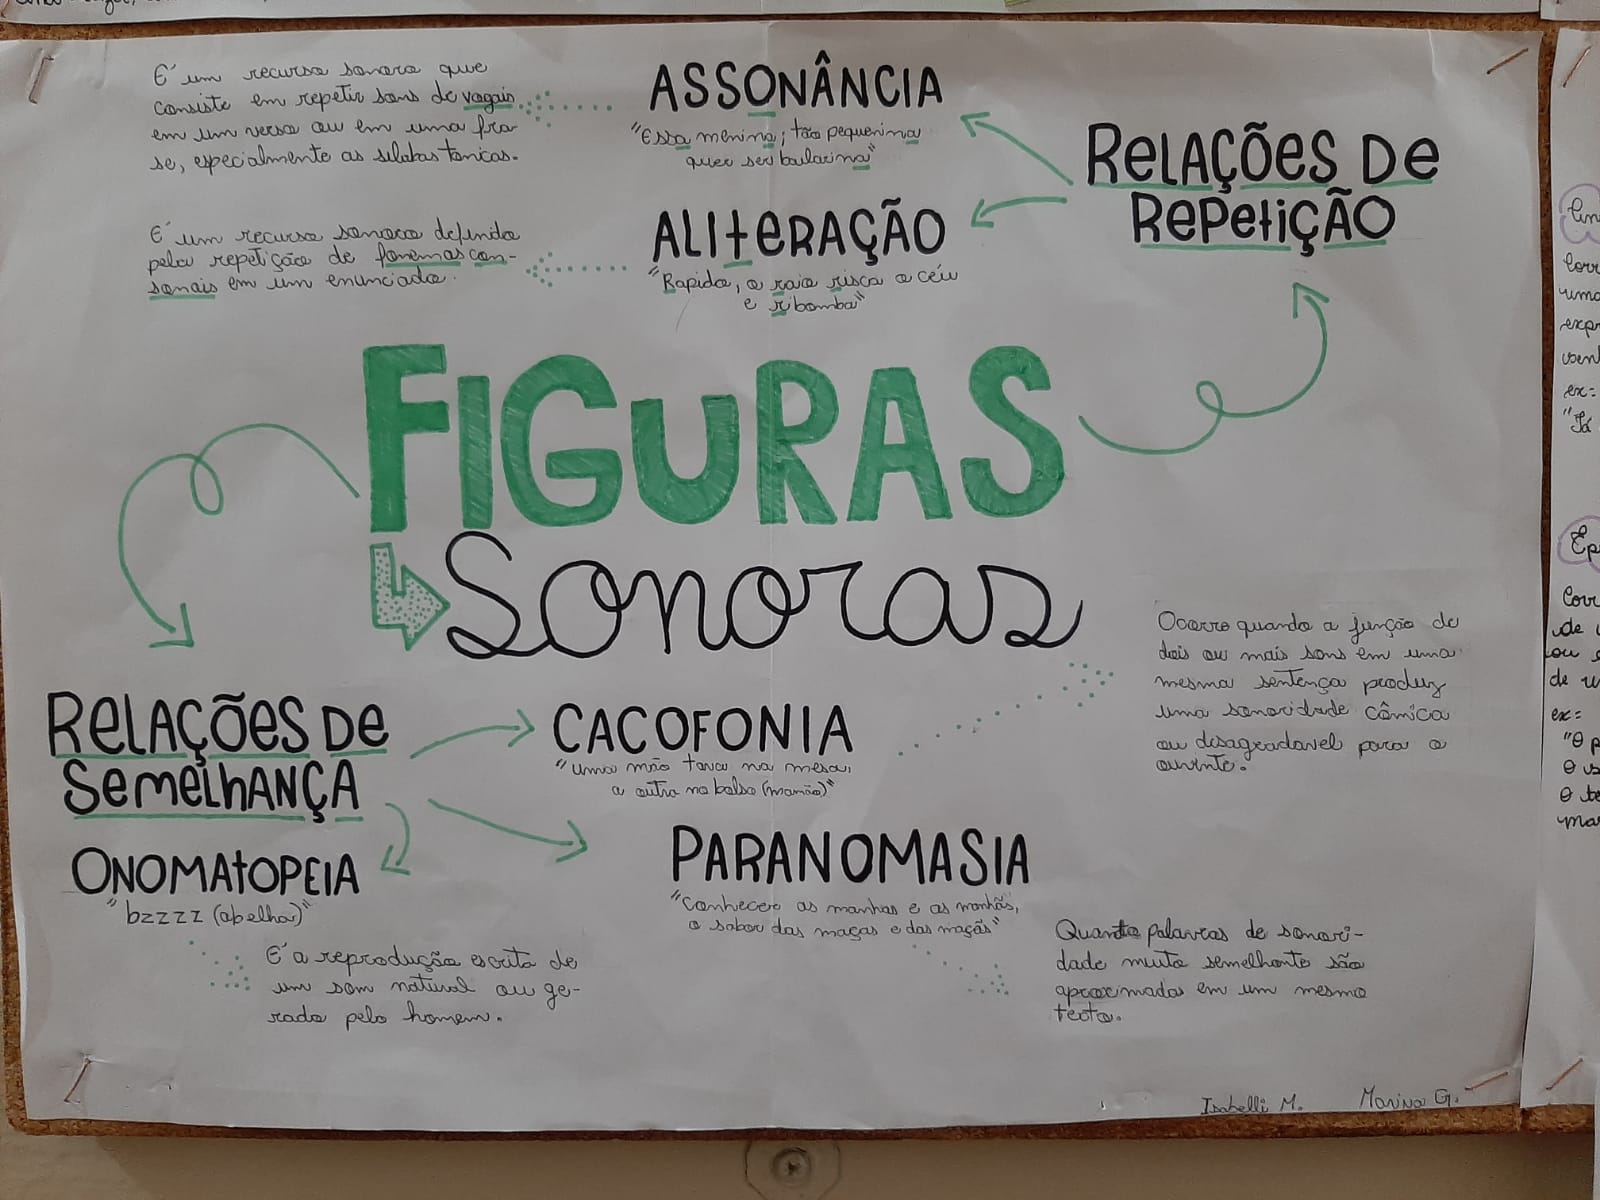 É um recurso sonoro que
consiste em repetir sons de vogais
em um verso ou em uma fra-
se, especialmente as silabas tonicas.
ASSONÂNCIA
"Essa menina; tão pequenina
quer ser bailarina"
RELAÇÕES DE
REPETIÇÃO
É um recurso sonoro definido
pela repetição de fonemas con-
sonais em um enunciado.
ALITERAÇÃO
"Rapido, o raio risca o céu
e ribomba"
FIGURAS
Sonoras
RELAÇÕES DE
SEMELHANÇA
CACOFONIA
"uma mão tava na mesa,
a outra no bolso (mamão)"
Ocorre quando a função de
dois ou mais sons em uma
mesma sentença produz
uma sonoridade cômica
ou desagradavel para o
ouvinte.
ONOMATOPEIA
"bzzzz (abelha)"
É a reprodução escrita de
um som natural ou ge-
rado pelo homem.
PARANOMASIA
"Conhecer as manhas e as manhãs,
o sabor das maças e das maçãs"
Quando palavras de sonori-
dade muito semelhante são
aproximadas em um mesmo
texto.
Isabelli M.
Marina G.
uma
ex=
"Já
ou
ex=
"O
O
O